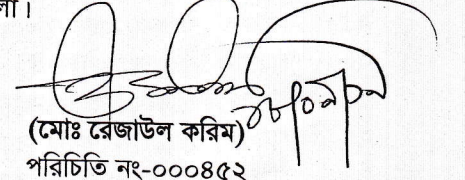 লা।
(মোঃ রেজাউল করিম)
পরিচিতি নং-০০০৪৫২